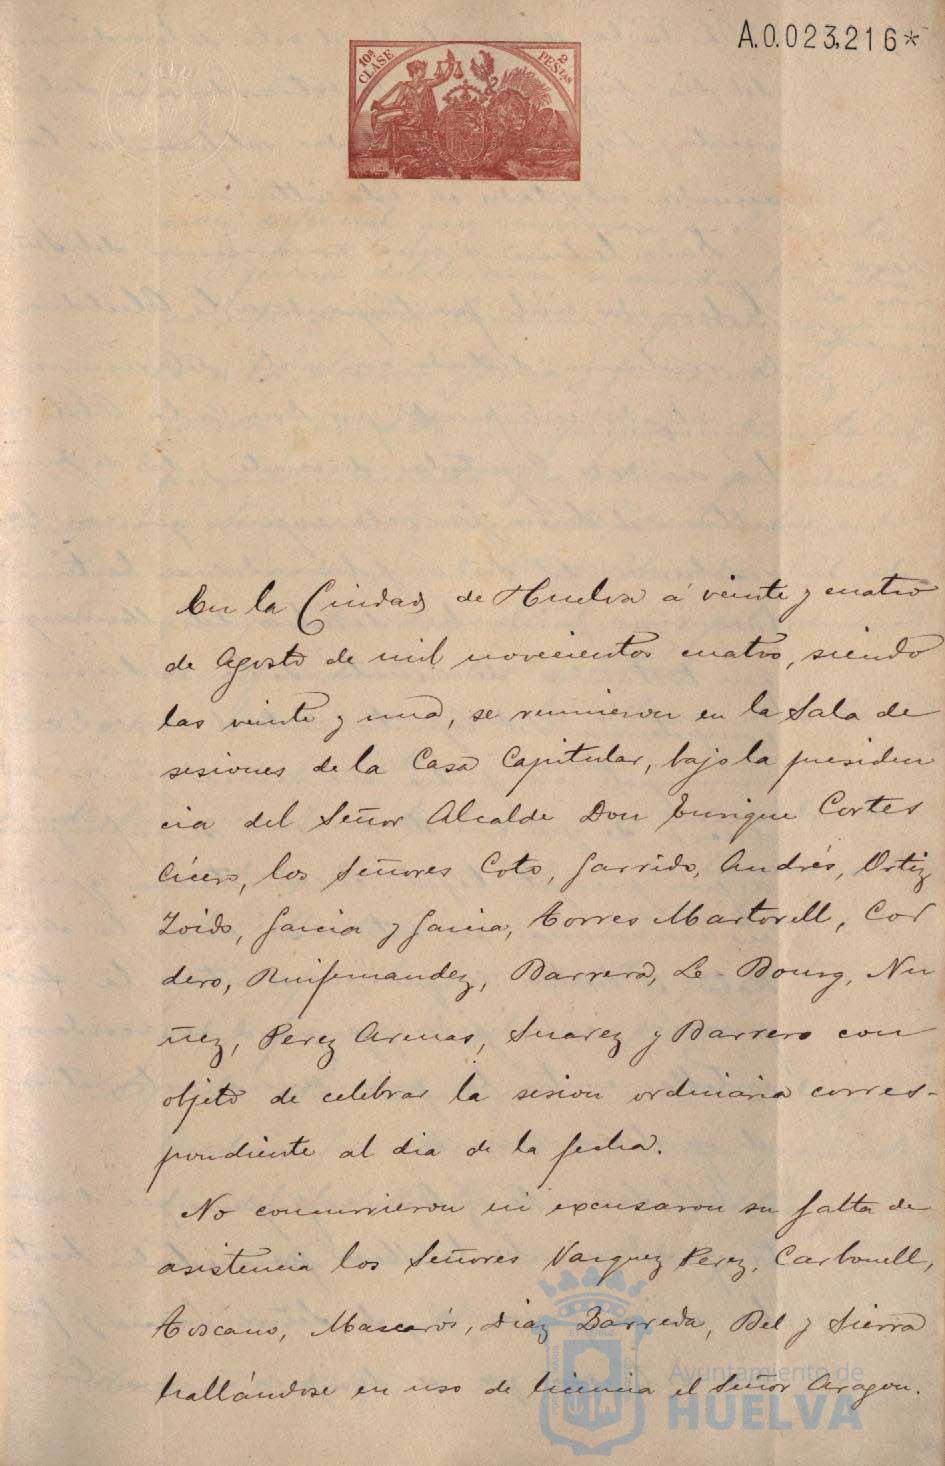 A.0.023,216*
10ª CLASE
2 PESTAS
En la Ciudad de Huelva á veinte y cuatro
de Agosto de mil novecientos cuatro, siendo
las veinte y una, se reunieron en la Sala de
sesiones de la Casa Capitular, bajo la presiden
cia del Señor Alcalde Don Enrique Cortes
Cícero, los Señores Coto, Garrido, Andrés, Ortiz
Zoido, Garcia y Garcia, Torres Martorell, Cor
dero, Ruifernandez, Barrera, Le Bourg, Nu
ñez, Perez Arenas, Suarez y Barrero con
objeto de celebrar la sesion ordinaria corres-
pondiente al dia de la fecha.
No concurrieron ni excusaron su falta de
asistencia los Señores Vazquez Perez, Carbonell,
Toscano, Mascarós, Diaz Barreda, Bel y Sierra
hallándose en uso de licencia el Señor Aragon.
Ayuntamiento de
HUELVA